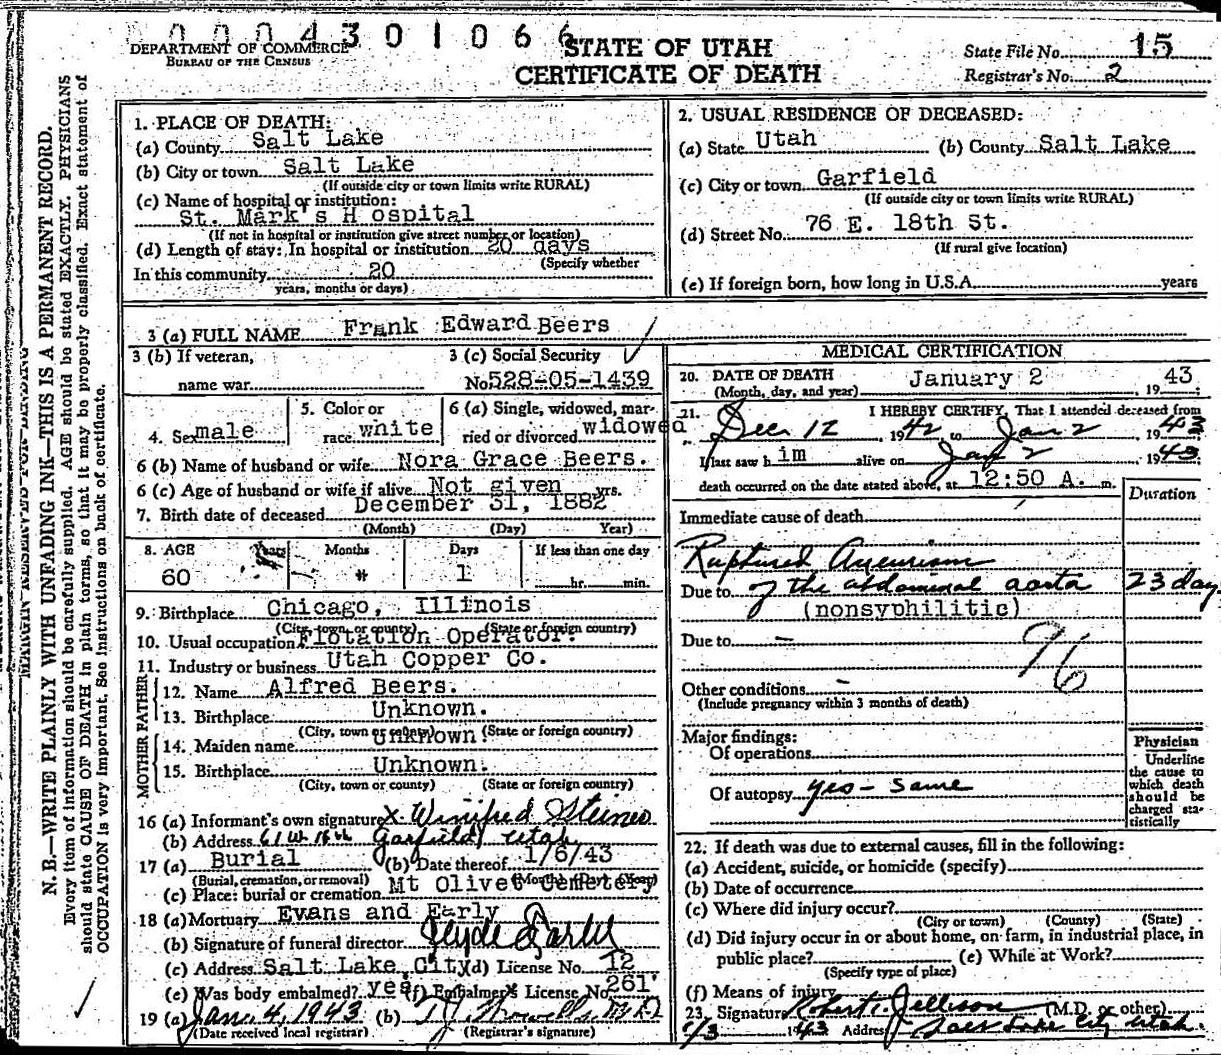 0 0 0 4 3 0 1 0 6 6
DEPARTMENT OF COMMERCE
BUREAU OF THE CENSUS
STATE OF UTAH
CERTIFICATE OF DEATH
State File No. 15
Registrar's No. 2
N. B.—WRITE PLAINLY WITH UNFADING INK—THIS IS A PERMANENT RECORD.
Every item of information should be carefully supplied. AGE should be stated EXACTLY. PHYSICIANS
should state CAUSE OF DEATH in plain terms, so that it may be properly classified. Exact statement of
OCCUPATION is very important. See instructions on back of certificate.
1. PLACE OF DEATH:
(a) County Salt Lake
(b) City or town Salt Lake
(If outside city or town limits write RURAL)
(c) Name of hospital or institution:
St. Mark's H ospital
(If not in hospital or institution give street number or location)
(d) Length of stay: In hospital or institution 20 days
(Specify whether
In this community 20
years, months or days)
2. USUAL RESIDENCE OF DECEASED:
(a) State Utah (b) County Salt Lake
(c) City or town Garfield
(If outside city or town limits write RURAL)
(d) Street No. 76 E. 18th St.
(If rural give location)
(e) If foreign born, how long in U.S.A. years
3 (a) FULL NAME Frank Edward Beers
3 (b) If veteran,
name war
3 (c) Social Security
No. 528-05-1439
4. Sex male
5. Color or
race white
6 (a) Single, widowed, mar-
ried or divorced widowed
6 (b) Name of husband or wife Nora Grace Beers.
6 (c) Age of husband or wife if alive Not given yrs.
7. Birth date of deceased December 31, 1882
(Month) (Day) Year)
8. AGE Years Months Days If less than one day
60 1 hr. min.
9. Birthplace Chicago, Illinois
(City, town, or county) (State or foreign country)
10. Usual occupation Flotation Operator.
11. Industry or business Utah Copper Co.
FATHER
12. Name Alfred Beers.
13. Birthplace Unknown.
(City, town or county) (State or foreign country)
MOTHER
14. Maiden name Unknown
15. Birthplace Unknown.
(City, town or county) (State or foreign country)
16 (a) Informant's own signature X Winifred Steines
(b) Address 61 W 18th Garfield, Utah
17 (a) Burial (b) Date thereof 1/6/43
(Burial, cremation, or removal) (Month) (Day) (Year)
(c) Place: burial or cremation Mt Olivet Cemetery
18 (a) Mortuary Evans and Early
(b) Signature of funeral director Clyde Early
(c) Address Salt Lake City (d) License No. 12
(e) Was body embalmed? yes (f) Embalmer's License No. 261
19 (a) Jan. 4, 1943 (b)
(Date received local registrar) (Registrar's signature)
MEDICAL CERTIFICATION
20. DATE OF DEATH
(Month, day, and year) January 2, 1943
21. I HEREBY CERTIFY, That I attended deceased from
Dec 12, 1942 to Jan 2, 1943
I last saw him alive on Jan 2 1943
death occurred on the date stated above, at 12:50 A. m.
Duration
Immediate cause of death
Ruptured Aneurism
Due to of the abdominal aorta 23 days
(nonsyphilitic)
Due to —
96
Other conditions —
(Include pregnancy within 3 months of death)
Major findings:
Of operations
Of autopsy yes - same
Physician
Underline
the cause to
which death
should be
charged sta-
tistically
22. If death was due to external causes, fill in the following:
(a) Accident, suicide, or homicide (specify)
(b) Date of occurrence
(c) Where did injury occur?
(City or town) (County) (State)
(d) Did injury occur in or about home, on farm, in industrial place, in
public place? (e) While at Work?
(Specify type of place)
(f) Means of injury
23. Signature Robert Jellison (M.D. or other)
1/3 1943 Address Salt Lake City Utah.